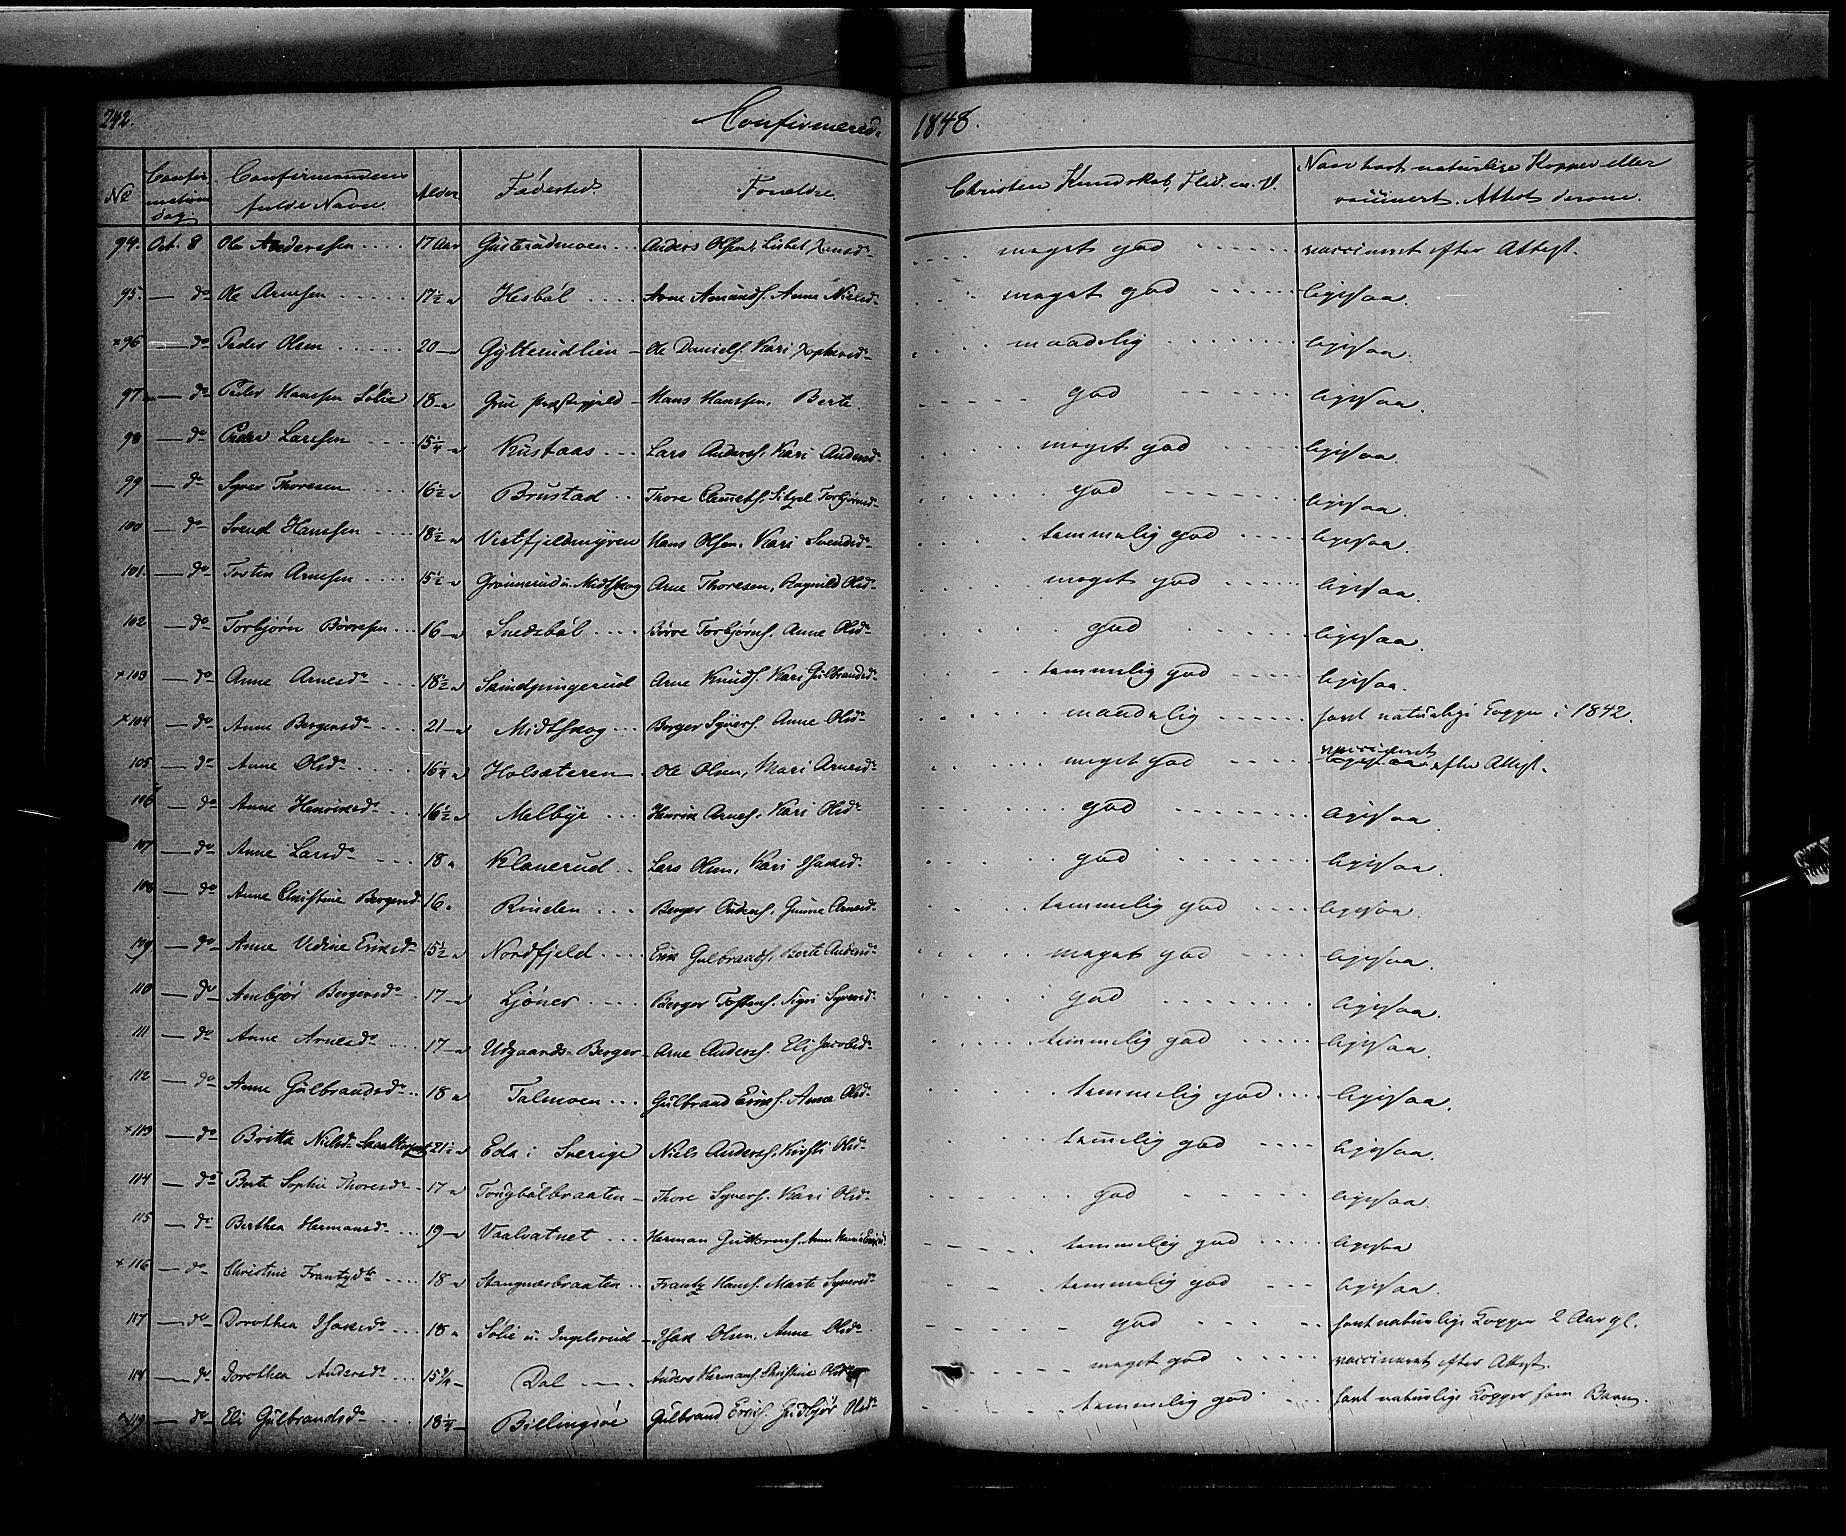 242. Confirmerede 1848.
No Confirmations dag Confirmandens fulde Navn. Alder Fødested. Forældre. Christen Kundskab, Flid. m. V. Naar havt naturlige Kopper eller vaccinert. Attest derom.
94. Oct. 8 Ole Anderssen 17 Aar Anders Olsen, Lisbet meget god vaccineret efter Attest.
95. — do Ole Arnesen 17½ " Hesbøl Arne Amunds. Anne Nielsd. meget god ligesaa.
×96 — do Peder Olsen 20 — " Gytterudlien Ole Daniels. Kari maadelig ligesaa.
97. — do Peder Hanssen Solie 18 — " Grue Præstegjeld Hans Hanssen, Berte god ligesaa.
98 — do Peder Larssen 15¼ " Kustaas Lars Anders. Kari Andersd. meget god ligesaa.
99 — do Syver Thoresen 16½ " Brustad Thore Clemets. Sitzel Torbjørnsd. god ligesaa.
100 — do Svend Hanssen 18½ " Vestfjeldmyren Hans Olsen, Kari Svendsd. temmelig god ligesaa.
101. — do Tosten Arnesen 15½ " Grønnerud u. Midtskog Arne Thoresen, Ragnild Olsd. meget god ligesaa.
102 — do Torbjørn Børresen 16 — " Snedsbøl Børre Torbjørns. Anne Olsd. god ligesaa.
×103 — do Anne Arnesd. 18½ " Arne Knuds. Kari Gulbrandsd. temmelig god ligesaa.
×104 — do Anne Bergersd. 21 — " Midtskog Berger Syvers. Anne Olsd. maadelig havt naturlige Kopper i 1842.
105 — do Anne Olsd. 16¼ " Holsæteren Ole Olsen, Mari Arnesd. meget god vaccineret efter Attest.
106 — do Anne Henriksd. 16½ " Melbye Henrik Arnes. Kari Olsd. god ligesaa.
107 — do Anne Larsd. 18 " Klanerud Lars Olsen, Kari Isaksd. god ligesaa.
108 — do Anne Christine Bergersd. 16 " Rinden Berger Gunne Arnesd. temmelig god ligesaa.
109 — do Anne Vedine Eriksd. 15½ " Nordfjeld Erik Gulbrands. Berte Andersd. meget god ligesaa.
110 — do Anbjør Bergersd. 17 — " Ljøner Berger Tostens. Sigri Syversd. god ligesaa.
111 — do Anne Arnesd. 17 — " Udgaards-Berger Arne Anders. Eli Jacobsd. temmelig god ligesaa.
112 — do Anne Gulbrandsd. 18 " Talmoen Gulbrand Eriks. Anne Olsd. temmelig god ligesaa.
×113 — do Britta Nielsd. 21½ " Eda i Sverige Niels Anders. Kirsti Olsd. temelig god ligesaa.
114 — do Berte Sophie Thoresd. 17 " Tougbølbraaten Thore Syvers. Kari Olsd. god ligesaa.
115 — do Berthea Hermansd. 19 — " Vaalvatnet Herman Gutterms. Anne temmelig god ligesaa
×116 — do Christine Frantzd. 18 " Stangnæsbraaten Frantz Hans. Marte Syversd. temmelig god ligesaa.
117 — do Dorothea Isaksd. 18 " Solie u. Ingelsrud Isak Olsen, Anne Olsd. god havt naturlige Kopper 2 Aar gl.
118 — do Dorothea Andersd. 15¾ — Dal Anders Hermans. Christine Olsd. meget god vaccineret efter Attest.
×119 — do Eli Gulbrandsd. 18¼ — Billingsøe Gulbrand Erics. Gudbjør Olsd. temmelig god havt naturlige Kopper som Barn.